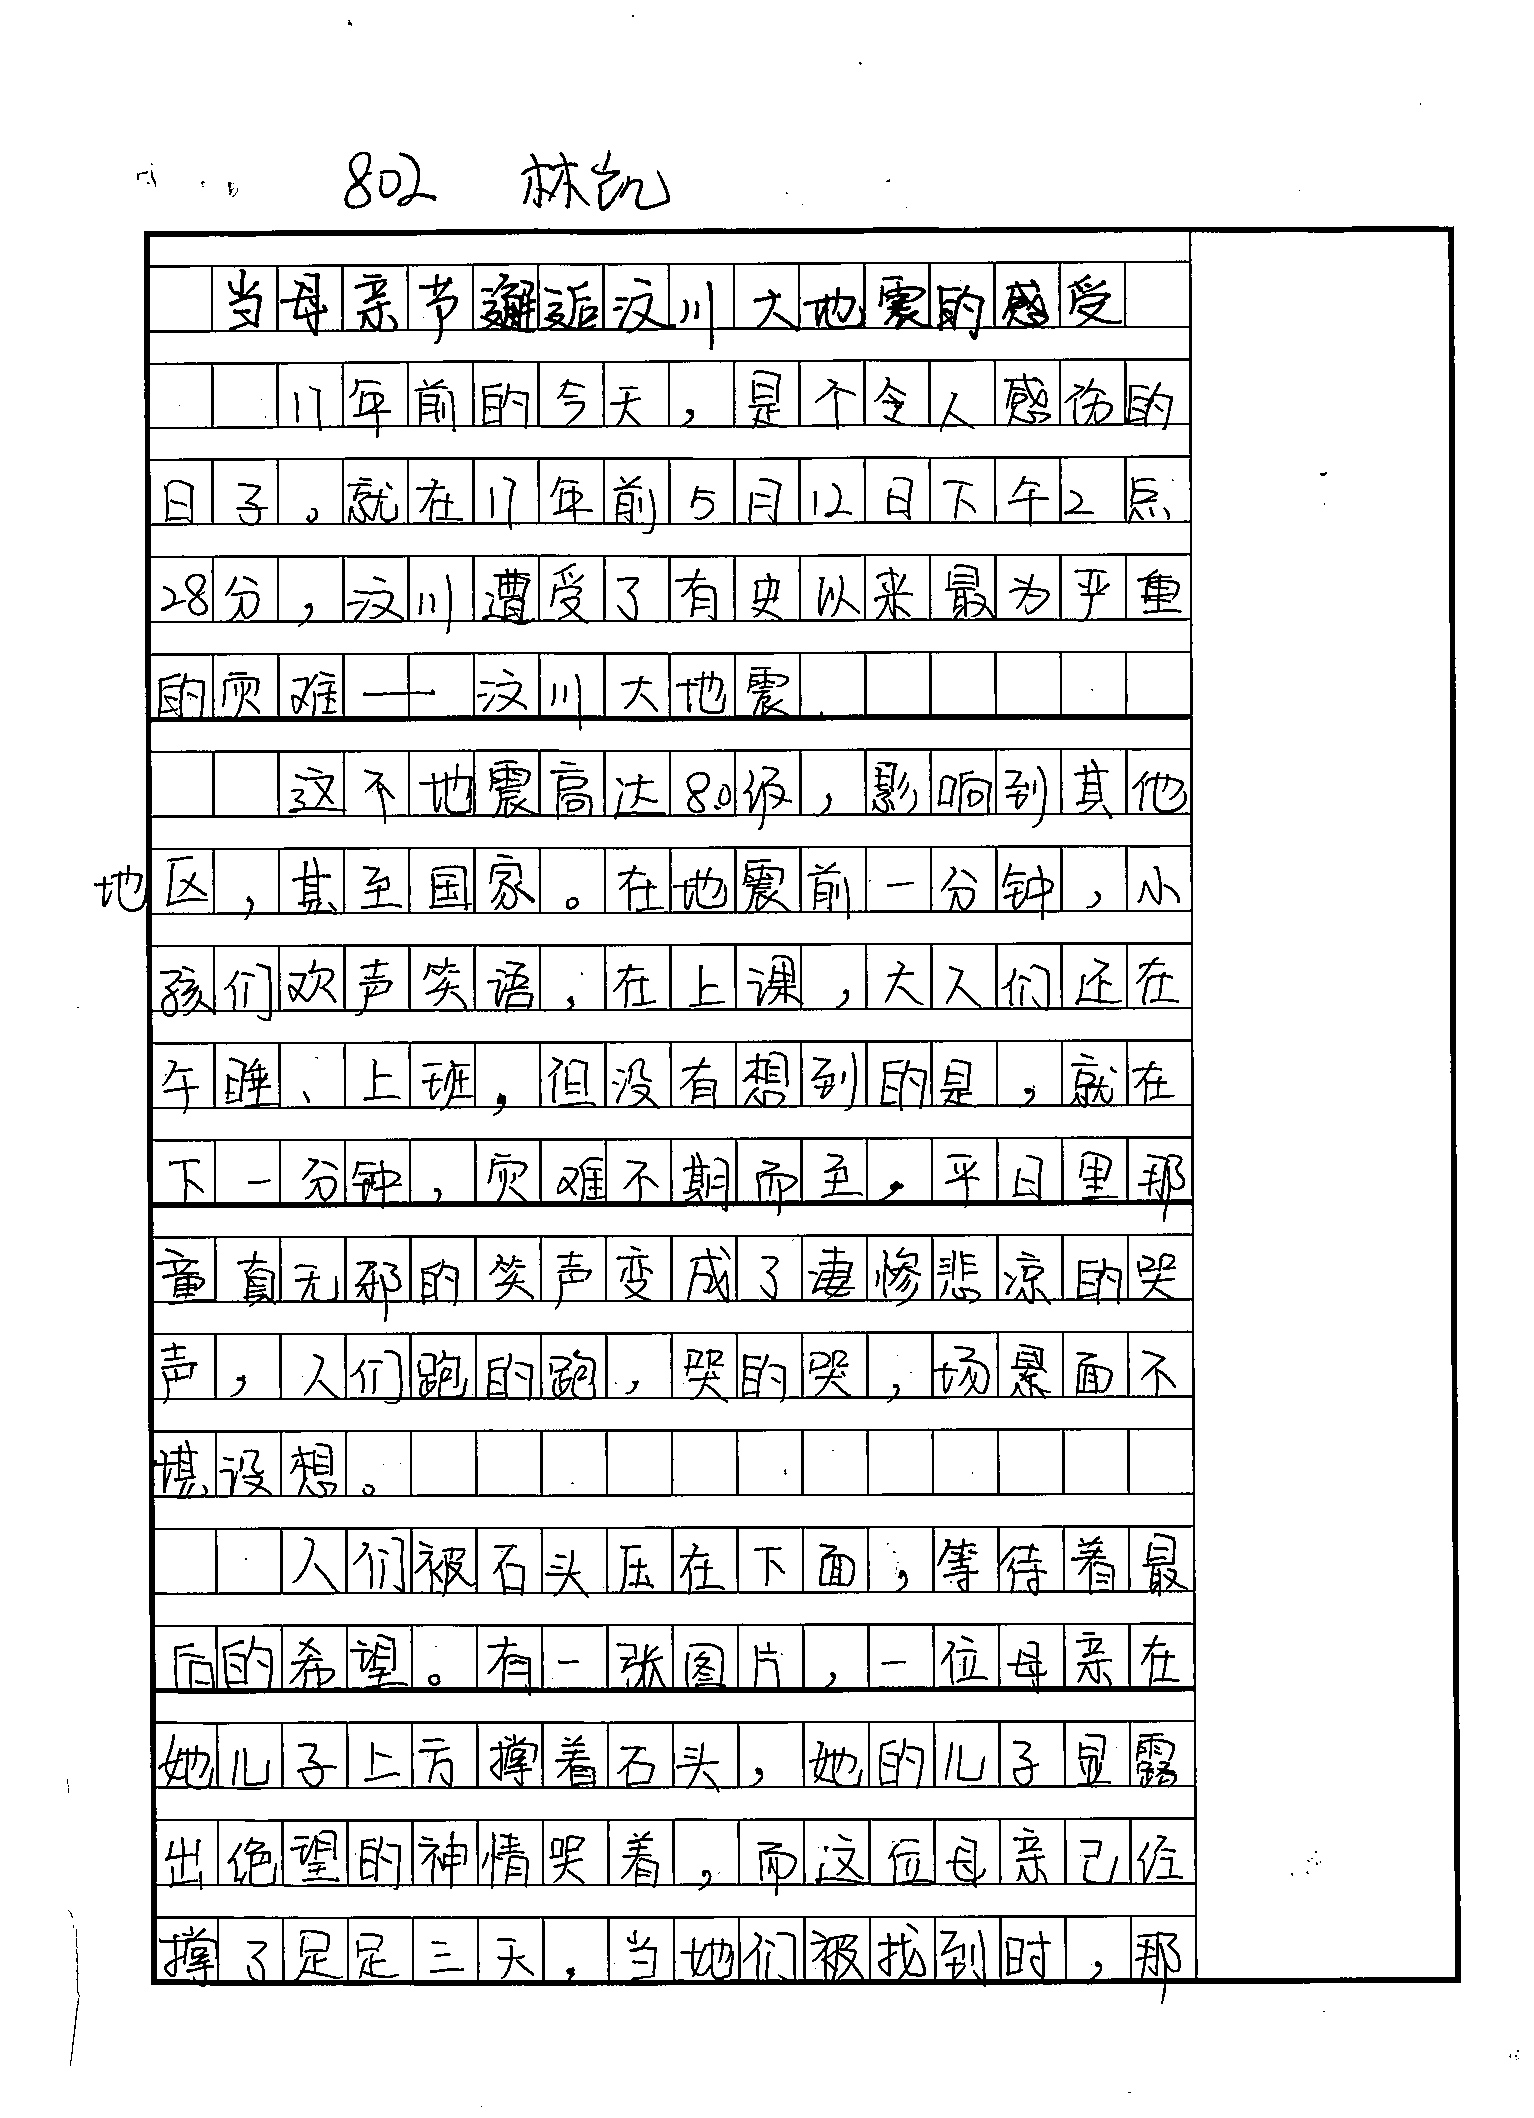 802 林凯
当母亲节邂逅汶川大地震的感受
17年前的今天，是个令人感伤的
日子。就在17年前5月12日下午2点
28分，汶川遭受了有史以来最为严重
的灾难——汶川大地震.
这不地震高达8.0级，影响到其他
地区，甚至国家。在地震前一分钟，小
孩们欢声笑语，在上课，大人们还在
午睡、上班，但没有想到的是，就在
下一分钟，灾难不期而至，平日里那
童真无邪的笑声变成了凄惨悲凉的哭
声，人们跑的跑，哭的哭，场景面不
堪设想。
人们被石头压在下面，等待着最
后的希望。有一张图片，一位母亲在
她儿子上方撑着石头，她的儿子显露
出绝望的神情哭着，而这位母亲已经
撑了足足三天，当她们被找到时，那